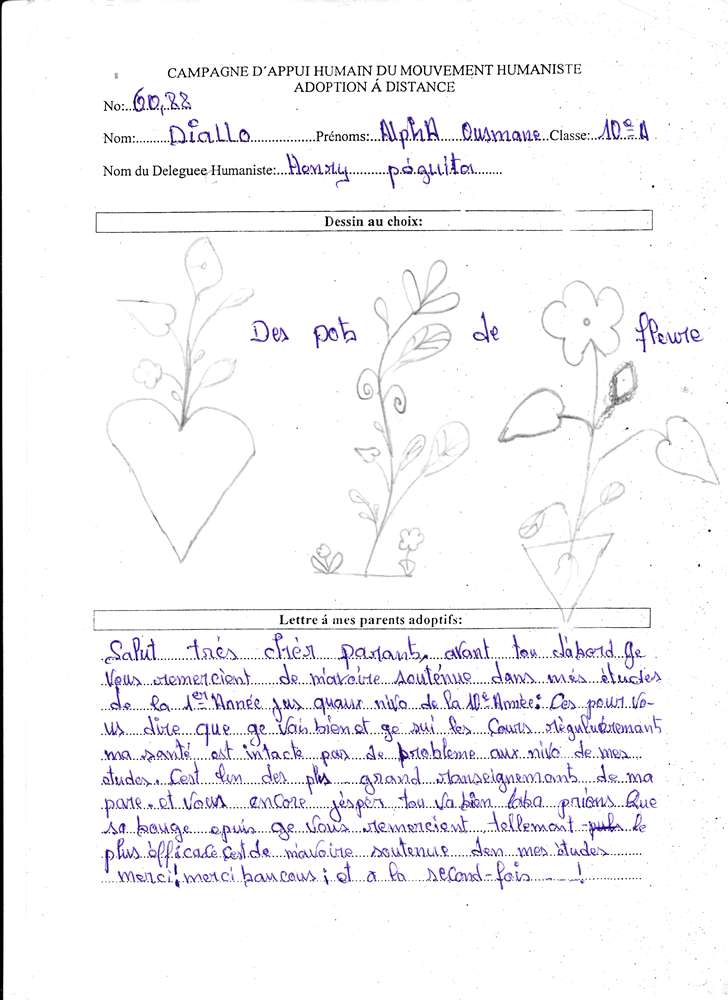 CAMPAGNE D'APPUI HUMAIN DU MOUVEMENT HUMANISTE
ADOPTION Á DISTANCE
No:..60,88
Nom:.........Diallo..................Prénoms:...AlphA Ousmane Classe:..10e A
Nom du Deleguee Humaniste:...Henry..........póguita........
Dessin au choix:
Des pots de fleure
Lettre á mes parents adoptifs:
Salut très chèr parant, avant tou d'abord ge
Vous remercient de m'avoire soutenue dans més études
de la 1er Année jus quaux nivo de la 10e Année: Ces pour vo-
us dire que ge vais bien et ge sui les Cours règulièremant
ma santé est intacte pas de probleme aux nivo de mes
études. Cest l'un des plus grand ranseignemant de ma
pare. et vous encore j'éspèr tou va bien laba prions que
sa bouge epuis ge vous remercient tellemant le
plus èfficace c'est de m'avoire soutenue den mes ètudes
merci! merci baucous; et a la second-fois ---!